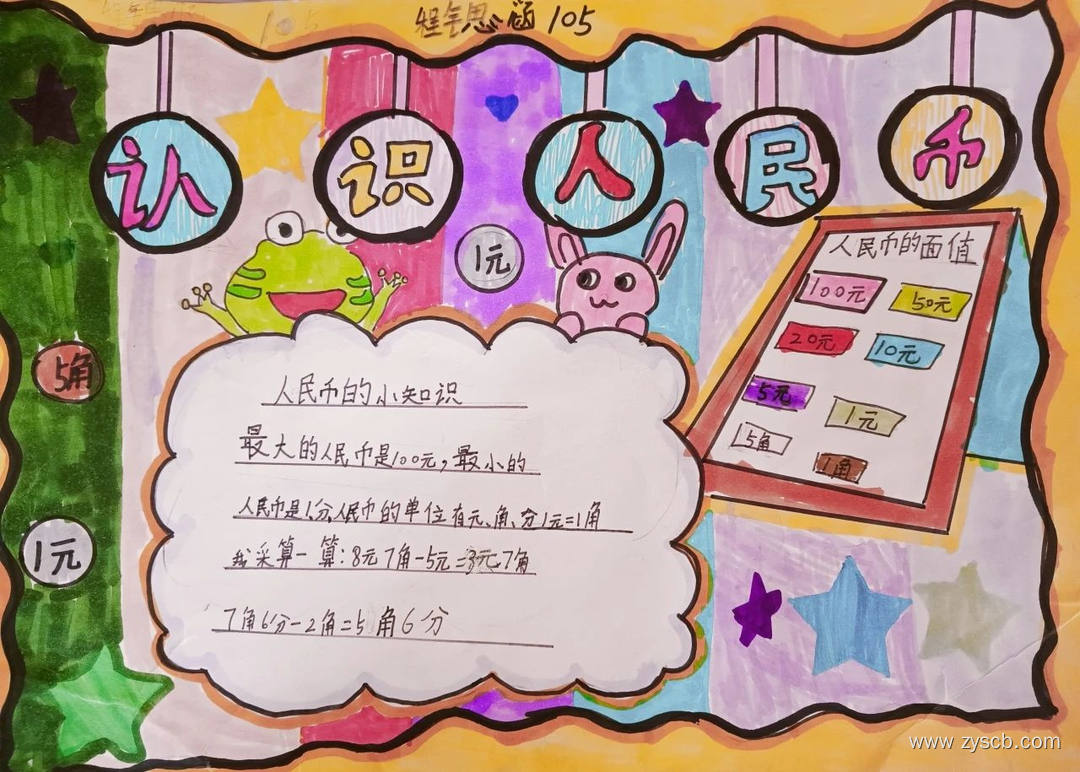 程梓思涵 105
认识人民币
1元
5角
1元
人民币的面值
100元 50元
20元 10元
5元 1元
5角 1角
人民币的小知识
最大的人民币是100元,最小的
人民币是1分,人民币的单位有元、角、分1元=1角
我来算一算:8元7角-5元=3元7角
7角6分-2角=5角6分
www.zyscb.com